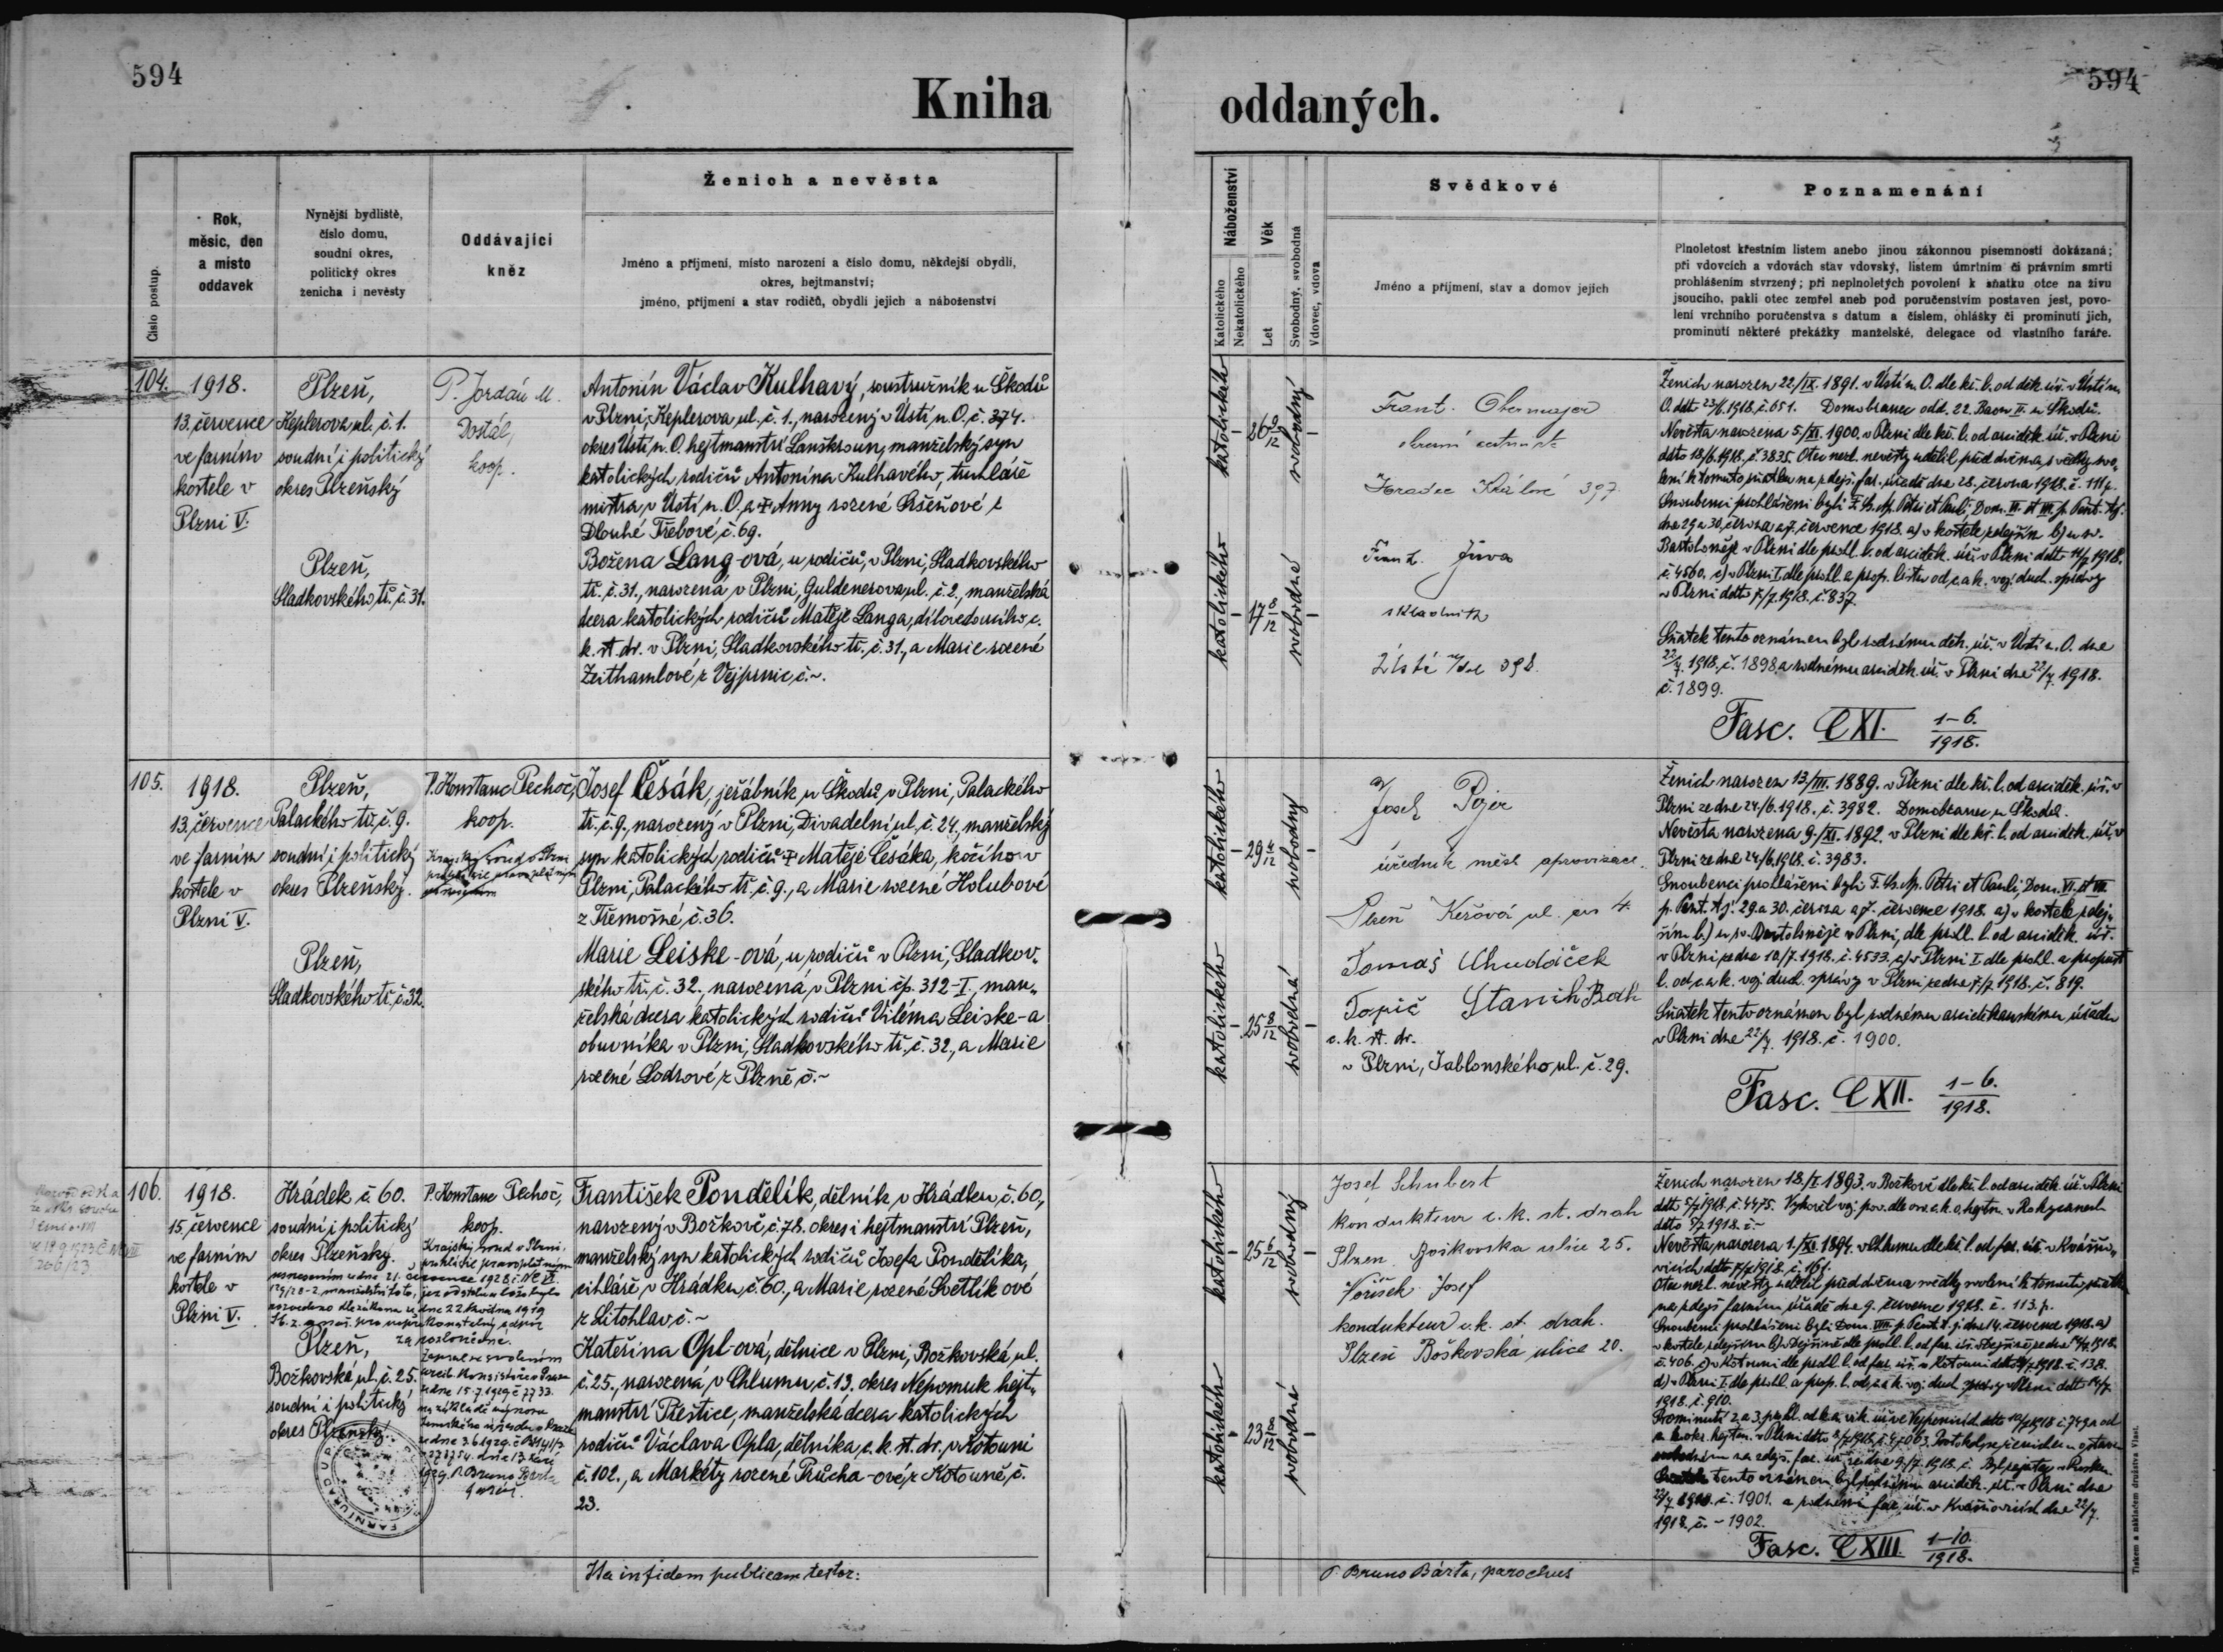 594
Kniha
Číslo postup.
Rok,
měsíc, den
a místo
oddavek
Nynější bydliště,
číslo domu,
soudní okres,
politický okres
ženicha i nevěsty
Oddávající
kněz
Ženich a nevěsta
Jméno a příjmení, místo narození a číslo domu, někdejší obydlí,
okres, hejtmanství;
jméno, příjmení a stav rodičů, obydlí jejich a náboženství
104.
1918.
13. července
ve farním
kostele v
Plzni V.
Plzeň,
Keplerova ul. č. 1.
soudní i politický
okres Plzeňský
Plzeň,
Sladkovského tř. č. 31.
P. Jordán M.
Dostál,
koop.
Antonín Václav Kulhavý, soustružník u Škodů
v Plzni, Keplerova ul. č. 1., narozený v Ústí n. O. č. 374.
okres Ústí n. O. hejtmanství Lanškroun, manželský syn
katolických rodičů Antonína Kulhavého, truhláře
mistra v Ústí n. O. a Anny rozené z
Dlouhé Třebové, č. 69.
Božena Lang-ová, u rodičů, v Plzni, Sladkovského
tř. č. 31., narozená v Plzni, Guldenerova ul. č. 2., manželská
dcera katolických rodičů Matěje Langa, dílovedoucího c.
k. st. dr. v Plzni, Sladkovského tř. č. 31., a Marie rozené
Zeithamlové z Vejprnic č. ~.
105.
1918.
13. července
ve farním
kostele v
Plzni V.
Plzeň,
Palackého tř. č. 9.
soudní i politický
okres Plzeňský.
Plzeň,
Sladkovského tř. č. 32.
P. Konstanc Pechoč,
koop.
Krajský soud v Plzni
prohlásil pravoplatným
Josef Česák, jeřábník u Škodů v Plzni, Palackého
tř. č. 9., narozený v Plzni, Divadelní ul. č. 24., manželský
syn katolických rodičů Matěje Česáka, kočího v
Plzni, Palackého tř. č. 9., a Marie rozené Holubové
z Třemošné, č. 36.
Marie Leiske-ová, u rodičů v Plzni, Sladkov-
ského tř. č. 32., narozená v Plzni čp. 312-I., man-
želská dcera katolických rodičů Viléma Leiske-a
obuvníka v Plzni, Sladkovského tř. č. 32., a Marie
rozené Lodrové, z Plzně, č. ~
106.
1918.
15. července
ve farním
kostele v
Plzni V.
Hrádek č. 60.
soudní i politický
okres Plzeňský.
Plzeň,
Božkovská ul. č. 25.
soudní i politický
okres Plzeňský.
P. Konstanc Pechoč,
koop.
Krajský soud v Plzni,
prohlásil pravoplatným
usnesením ze dne 21. července 1928 č. Nc VI.
dne 22 května 1919
za rozloučené.
František Pondělík, dělník v Hrádku, č. 60.,
narozený v Božkově, č. 78. okres i hejtmanství Plzeň,
manželský syn katolických rodičů Josefa Pondělíka,
cihláře, v Hrádku, č. 60., a Marie, rozené Světlík-ové
z Litohlav, č. ~
Kateřina Opl-ová, dělnice v Plzni, Božkovská ul.
č. 25., narozená v Chlumu, č. 13. okres Nepomuk hejt-
manství Přeštice, manželská dcera katolických
rodičů Václava Opla, dělníka, c. k. st. dr. v Kotouni
č. 102., a Markéty rozené Průcha-ové, z Kotouně, č.
23.
Ita in fidem publicam testor:
594
oddaných.
Náboženství
Katolického
Nekatolického
Věk
Let
Svobodný, svobodná
Vdovec, vdova
Svědkové
Jméno a příjmení, stav a domov jejich
Poznamenání
Plnoletost křestním listem anebo jinou zákonnou písemností dokázaná;
při vdovcích a vdovách stav vdovský, listem úmrtním či právním smrti
prohlášením stvrzený; při neplnoletých povolení k sňatku otce na živu
jsoucího, pakli otec zemřel aneb pod poručenstvím postaven jest, povo-
lení vrchního poručenstva s datum a číslem, ohlášky či prominutí jich,
prominutí některé překážky manželské, delegace od vlastního faráře.
katolického
26 9/12
svobodný
katolického
17 8/12
svobodná
Frant. Obermajer
Hradec Králové 397
Frant. Jůva
skladník
Ústí n/Orl 398.
Ženich narozen 22./IX. 1891. v Ústí n. O. dle kř. l. od děk. úř. v Ústí n.
O. ddto 23/6. 1918. č. 651. Domobranec odd. 22. Baon II. u Škodů.
Nevěsta narozena 5./XI. 1900. v Plzni dle kř. l. od arciděk. úř. v Plzni
ddto 18/6. 1918. č. 3835. Otec nezl. nevěsty udělil, před dvěma svědky svo-
lení k tomuto sňatku na zdejš. far. úřadě dne 28. června 1918. č. 111 p.
Snoubenci prohlášeni byli F. Ss. Ap. Petri et Pauli, Dom. VI. et VII. p. Pent. tj.
dne 29 a 30. června a 7. července 1918. a) v kostele zdejším b) u sv.
Bartoloměje v Plzni dle prohl. l. od arciděk. úř. v Plzni ddto 11/7 1918.
č. 4560. c) v Plzni I. dle prohl. a prop. listu od c. a k. voj. duch. správy
v Plzni ddto 7./7. 1918. č. 837.
Sňatek tento oznámen byl rodnému děk. úř. v Ústí n. O. dne
22/7. 1918. č. 1898. a rodnému arciděk. úř. v Plzni dne 22/7. 1918.
č. 1899.
Fasc. CXI. 1-6. 1918.
katolického
29 4/12
svobodný
katolického
25 8/12
svobodná
Josef Pojer
úředník měst. aprovizace
Plzeň
Tomáš Chudáček
Topič
c. k. st. dr.
v Plzni, Jablonského ul. č. 29.
Ženich narozen 13/III. 1889. v Plzni dle kř. l. od arciděk. úř. v
Plzni ze dne 24/6. 1918. č. 3982. Domobranec u Škodů.
Nevěsta narozena 9./XI. 1892. v Plzni dle kř. l. od arciděk. úř. v
Plzni ze dne 24/6. 1918. č. 3983.
Snoubenci prohlášeni byli F. Ss. Ap. Petri et Pauli, Dom. VI. et VII.
p. Pent. tj. 29. a 30. června a 7. července 1918. a) v kostele zdej-
ším b) u sv. Bartoloměje v Plzni, dle prohl. l. od arciděk. úř.
v Plzni ze dne 10/7. 1918. č. 4533. c) v Plzni I. dle prohl. a propust.
l. od c. a k. voj. duch. správy v Plzni ze dne 7./7. 1918. č. 819.
Sňatek tento oznámen byl rodnému arciděkanskému úřadu
v Plzni dne 22/7. 1918. č. 1900.
Fasc. CXII. 1-6. 1918.
katolického
25 6/12
svobodný
katolického
23 8/12
svobodná
Josef Schubert
kondukteur c. k. st. drah
Plzen Boškovska ulice 25.
Voříšek Josef
kondukteur c. k. st. drah.
Plzeň Boškovská ulice 20.
Ženich narozen 18./I. 1893. v Božkově dle kř. l. od arciděk. úř. v Plzni
ddto 5/7 1918. č. 4475.
Nevěsta narozena 1./XI. 1894. v Chlumu dle kř. l. od far. úř. v Kvášňo-
vicích
Otec nezl. nevěsty udělil před dvěma svědky svolení k tomuto sňatku
na zdejš. farním úřadě dne 9. července 1918. č. 113. p.
Snoubenci prohlášeni byli Dom. VIII. p. Pent. t. j. dne 14. července 1918. a)
1918. č. 910.
č. 1901. a rodnému far. úř. v Kvášňovicích dne 22/7.
1918. č. - 1902.
Fasc. CXIII. 1-10. 1918.
P. Bruno Bárta, parochus
Tiskem a nákladem družstva Vlast.